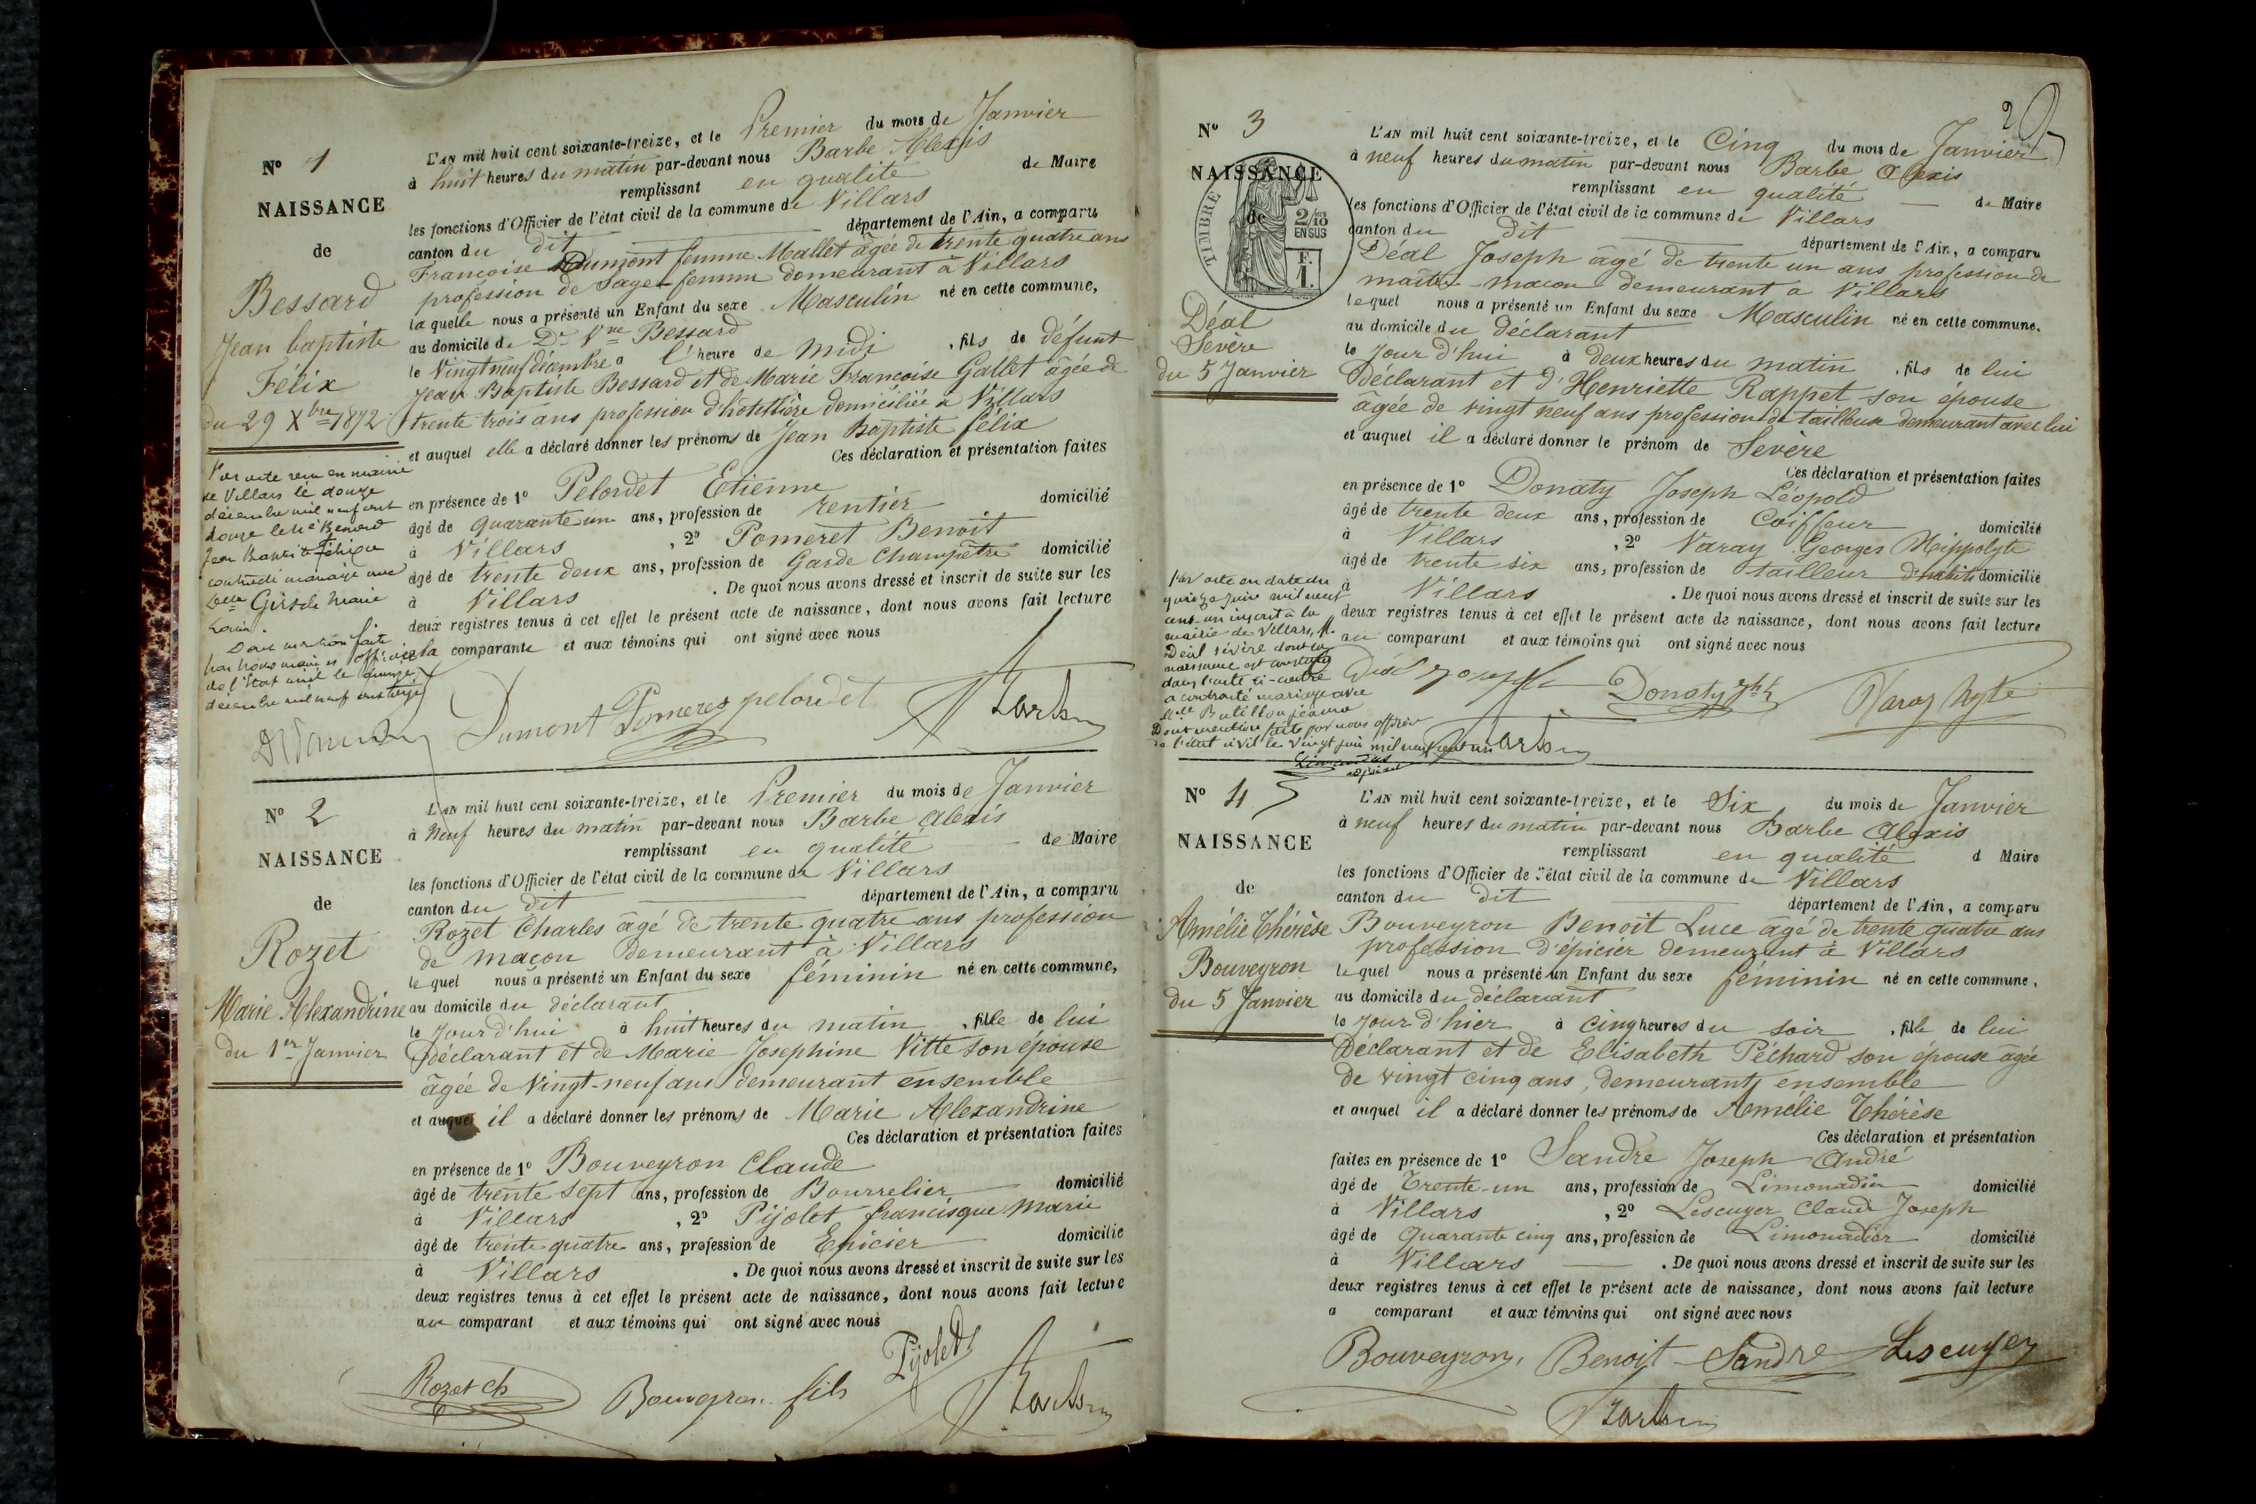 N° 1
NAISSANCE
de
Bessard
Jean baptiste
Félix
du 29 Xbre 1872
L'AN mil huit cent soixante-treize, et le Premier du mois de Janvier
à huit heures du matin par-devant nous Barbe Alexis
remplissant en qualité de Maire
les fonctions d'Officier de l'état civil de la commune de Villars
canton du dit département de l'Ain, a comparu
Françoise Dumont femme Mallet âgée de trente quatre ans
profession de Sage-femme demeurant à Villars
la quelle nous a présenté un Enfant du sexe Masculin né en cette commune,
au domicile de De Vve Bessard
le Vingt neuf décembre à l'heure de midi, fils de défunt
Jean Baptiste Bessard et de Marie Françoise Gallet âgée de
trente trois ans profession d'hôtellière domiciliée à Villars
et auquel elle a déclaré donner les prénoms de Jean Baptiste félix
Ces déclaration et présentation faites
en présence de 1° Pelordet Etienne
âgé de quarante un ans, profession de rentier domicilié
à Villars, 2° Pomeret Benoit
âgé de trente deux ans, profession de Garde Champêtre domicilié
à Villars. De quoi nous avons dressé et inscrit de suite sur les
deux registres tenus à cet effet le présent acte de naissance, dont nous avons fait lecture
à la comparante et aux témoins qui ont signé avec nous
Par acte reçu en mairie
de Villars le douze
décembre mil neuf cent
douze le sé Bessard
Jean Baptiste Félix a
contracté mariage avec
Delle Girod Marie
Dont mention faite
par nous maire officier
de l'Etat civil le quinze
décembre mil neuf cent
Dumont Pomeret pelordet
N° 2
NAISSANCE
de
Rozet
Marie Alexandrine
du 1er Janvier
L'AN mil huit cent soixante-treize, et le Premier du mois de Janvier
à Neuf heures du matin par-devant nous Barbe Alexis
remplissant en qualité de Maire
les fonctions d'Officier de l'état civil de la commune de Villars
canton du dit département de l'Ain, a comparu
Rozet Charles âgé de trente quatre ans profession
de maçon demeurant à Villars
le quel nous a présenté un Enfant du sexe féminin né en cette commune,
au domicile du déclarant
le Jour d'hui à huit heures du matin, fille de lui
déclarant et de Marie Josephine Vitte son épouse
âgée de Vingt-neuf ans demeurant ensemble
et auquel il a déclaré donner les prénoms de Marie Alexandrine
Ces déclaration et présentation faites
en présence de 1° Bouveyron Claude
âgé de trente sept ans, profession de Bourrelier domicilié
à Villars, 2° Pijolet francisque Marie
âgé de trente quatre ans, profession de Epicier domicilié
à Villars. De quoi nous avons dressé et inscrit de suite sur les
deux registres tenus à cet effet le présent acte de naissance, dont nous avons fait lecture
au comparant et aux témoins qui ont signé avec nous
Rozet ch Bouveyron fils Pijolet
2
N° 3
NAISSANCE
de
TIMBRE
2/10 EN SUS
F. 1.
Déal
Sevère
du 5 Janvier
L'AN mil huit cent soixante-treize, et le Cinq du mois de Janvier
à neuf heures du matin par-devant nous Barbe Alexis
remplissant en qualité de Maire
les fonctions d'Officier de l'état civil de la commune de Villars
canton du dit département de l'Ain, a comparu
Déal Joseph âgé de trente un ans profession de
maître-maçon demeurant à Villars
lequel nous a présenté un Enfant du sexe Masculin né en cette commune.
au domicile du déclarant
le Jour d'hui à deux heures du matin, fils de lui
déclarant et d'Henriette Rappet son épouse
âgée de vingt neuf ans profession de tailleuse demeurant avec lui
et auquel il a déclaré donner le prénom de Sevère
Ces déclaration et présentation faites
en présence de 1° Donaty Joseph Léopold
âgé de trente deux ans, profession de Coiffeur domicilié
à Villars, 2° Varay Georges Hippolyte
âgé de trente six ans, profession de tailleur d'habits domicilié
à Villars. De quoi nous avons dressé et inscrit de suite sur les
deux registres tenus à cet effet le présent acte de naissance, dont nous avons fait lecture
au comparant et aux témoins qui ont signé avec nous
Par acte en date du
quinze Juin mil neuf
cent un inscrit à la
mairie de Villars, M.
Déal sévère dont la
naissance est constatée
dans l'acte ci-contre
a contracté mariage avec
Dont mention faite par nous officier
de l'état civil le vingt juin mil neuf cent un
Déal Joseph Donaty Varay Hyte
N° 4
NAISSANCE
de
Amélie Thérèse
Bouveyron
du 5 Janvier
L'AN mil huit cent soixante-treize, et le Six du mois de Janvier
à neuf heures du matin par-devant nous Barbe Alexis
remplissant en qualité d Maire
les fonctions d'Officier de l'état civil de la commune de Villars
canton du dit département de l'Ain, a comparu
Bouveyron Benoit Luce âgé de trente quatre ans
profession d'épicier demeurant à Villars
le quel nous a présenté un Enfant du sexe féminin né en cette commune,
au domicile du déclarant
le Jour d'hier à cinq heures du soir, fille de lui
Déclarant et de Elisabeth Péchard son épouse âgée
de vingt cinq ans, demeurant ensemble
et auquel il a déclaré donner les prénoms de Amélie Thérèse
Ces déclaration et présentation
faites en présence de 1° Sandre Joseph André
âgé de Trente-un ans, profession de Limonadier domicilié
à Villars, 2° Lescuyer Claude Joseph
âgé de Quarante cinq ans, profession de Limonadier domicilié
à Villars. De quoi nous avons dressé et inscrit de suite sur les
deux registres tenus à cet effet le présent acte de naissance, dont nous avons fait lecture
a comparant et aux témoins qui ont signé avec nous
Bouveyron Benoit Sandre Lescuyer